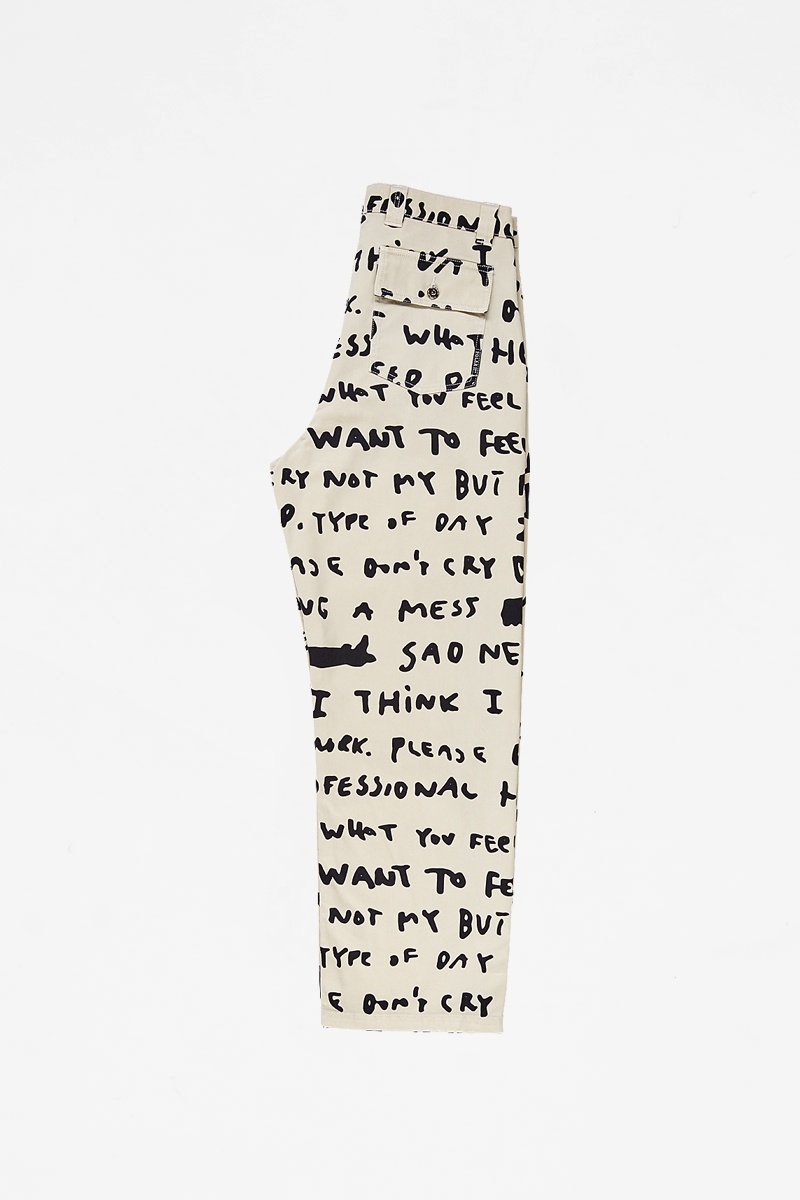 WHAT
WHAT YOU FEEL
WANT TO FEEL
RY NOT MY BUT
P. TYPE OF DAY
ASE DON'T CRY
NG A MESS
SADNE
I THINK I
WORK. PLEASE
OFESSIONAL H
WHAT YOU FEEL
WANT TO FE
NOT MY BUT
TYPE OF DAY
E DON'T CRY